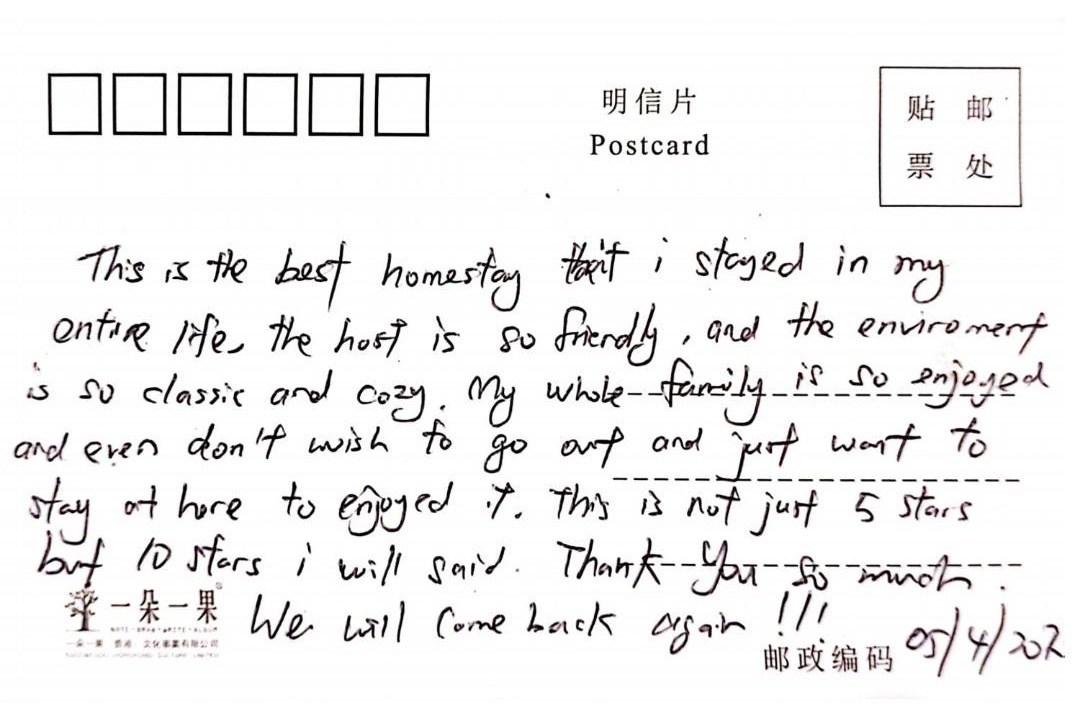 明信片
Postcard
贴 邮
票 处
This is the best homestay that i stayed in my
entire life, the host is so friendly, and the enviroment
is so classic and cozy. My whole family is so enjoyed
and even don't wish to go out and just want to
stay at here to enjoyed it. This is not just 5 stars
but 10 stars i will said. Thank you so much.
We will come back again !!!
一朵一果
NOTE·DRAW·WRITE·ALBUM
一朵一果 香港 文化事業有限公司
邮政编码
05/4/202